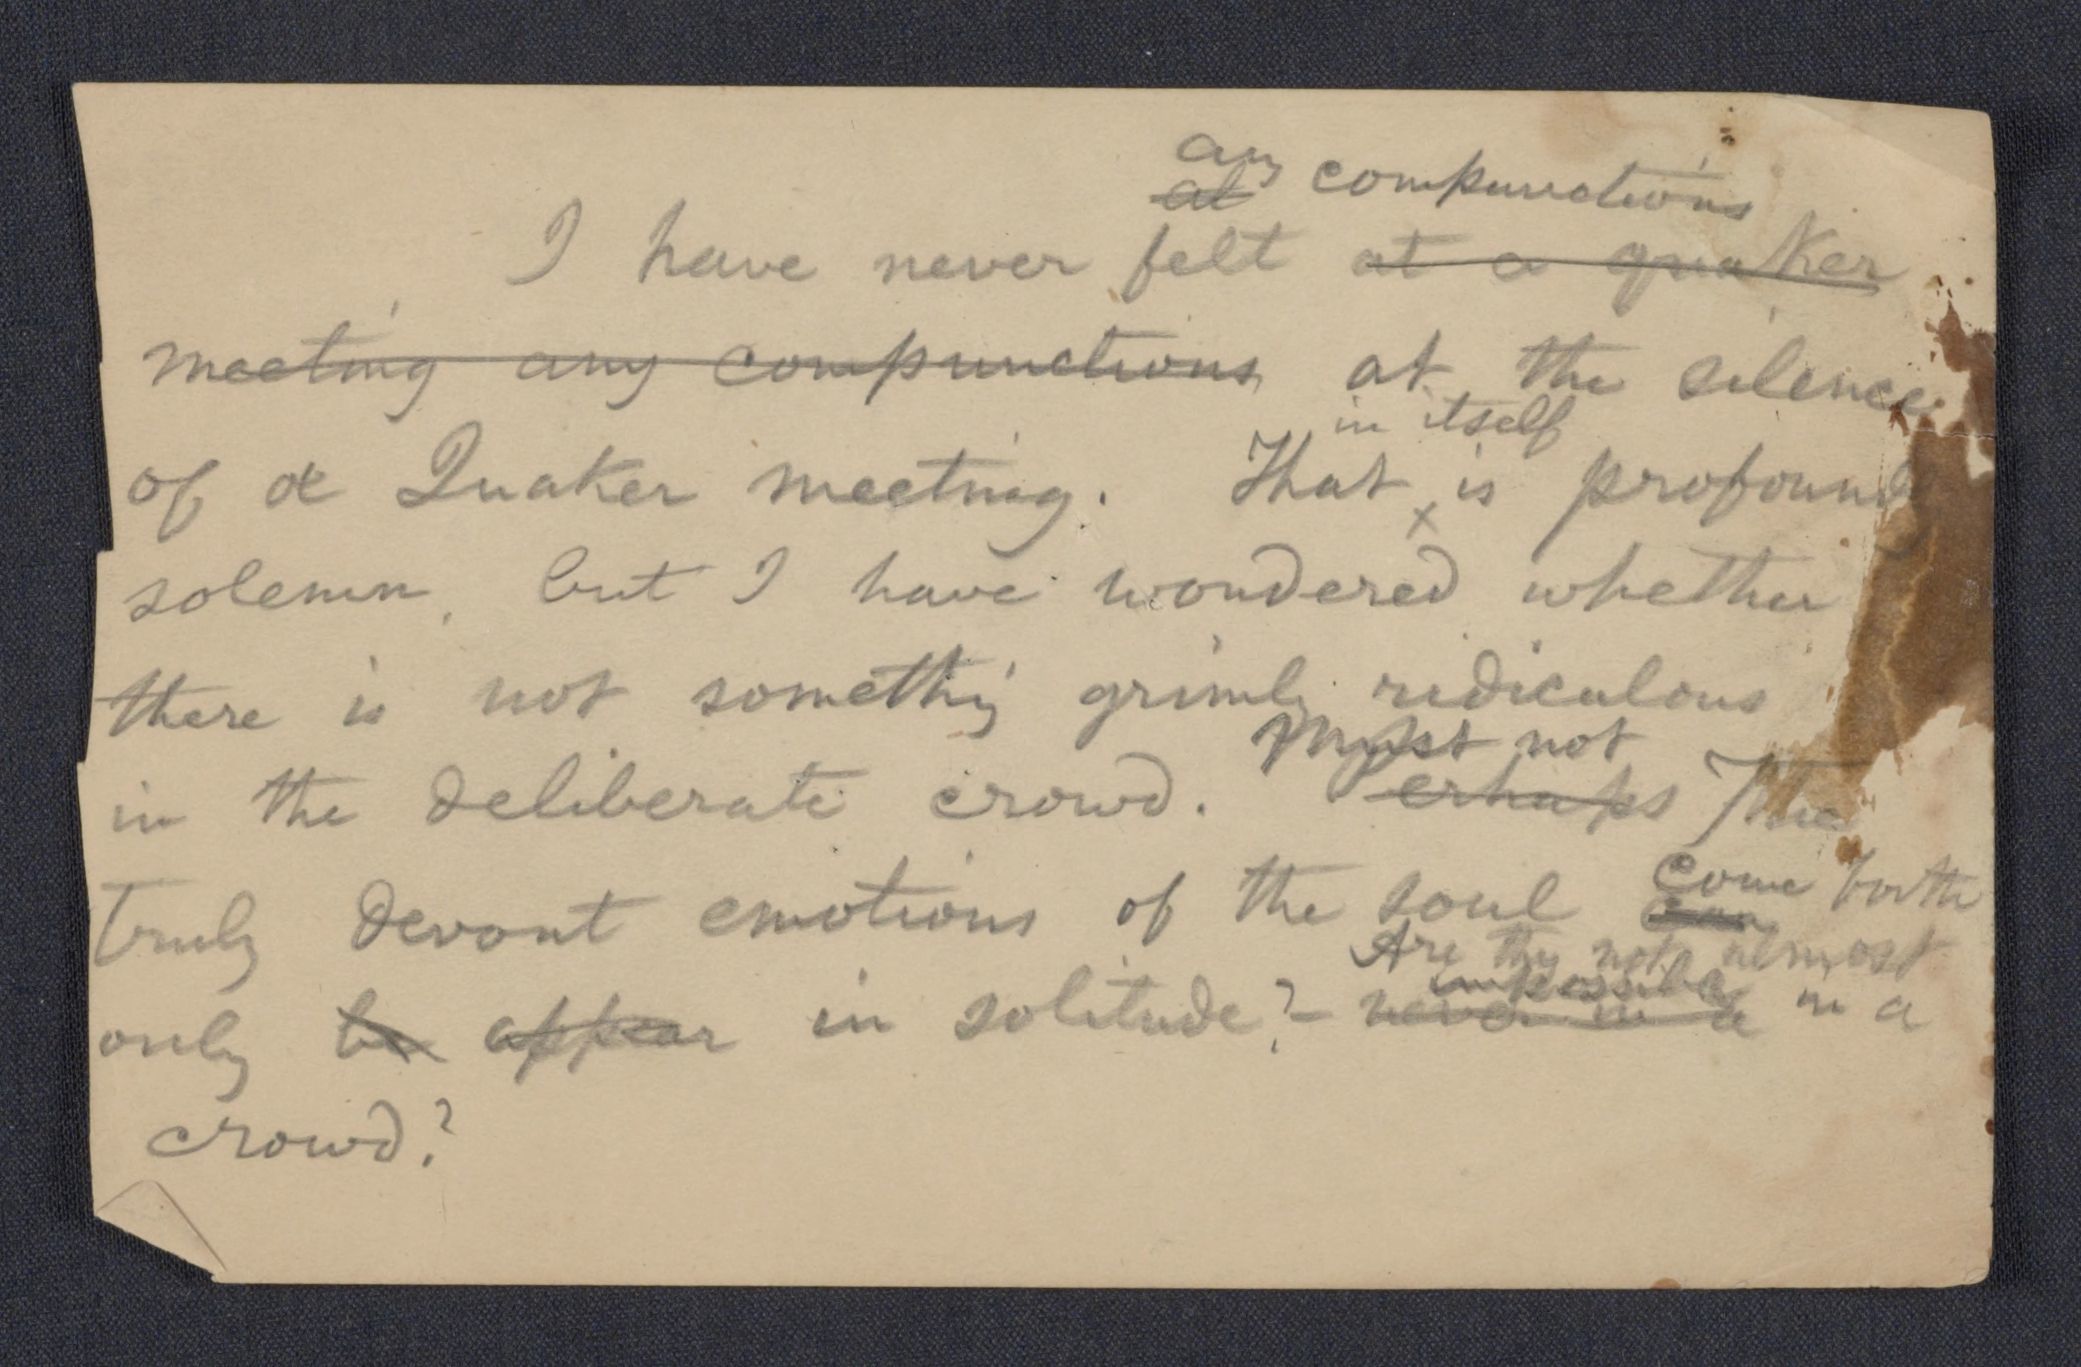 any compunctions
at
I have never felt at a quaker
meeting any compunctions at the silence
in itself
of a Quaker meeting. That is profound
x
solemn, but I have wondered whether
there is not somethig grimly ridiculous
in the deliberate crowd. Perhaps The
Must not
truly devout emotions of the soul can
come forth
Are they not almost
impossible
only be appear in solitude?– never in a in a
crowd?